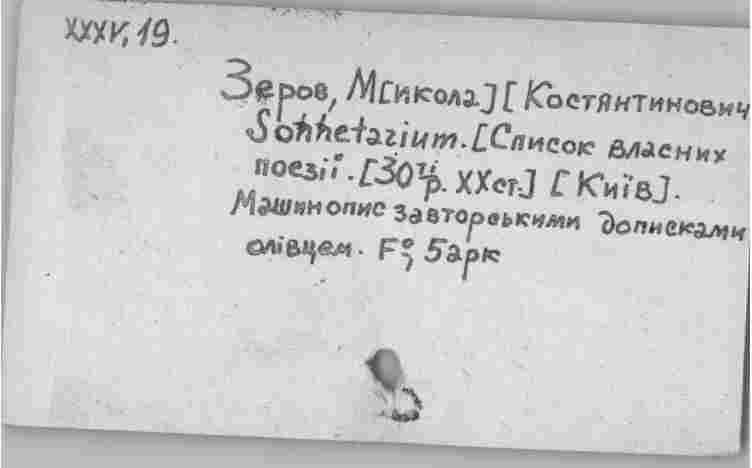 XXXV, 19.
Зеров, М[икола] [Костянтинович
Sonnetarium. [Список власних
поезії. [30ті р. XX ст.] [Київ].
Машинопис з авторськими дописками
олівцем. F°, 5 арк